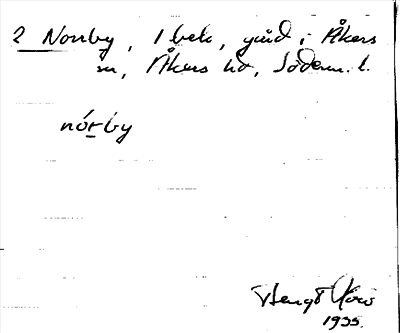 2 Norrby, 1 bebo, gård i Åkers
sn, Åkers hd, Söderm. l.
nórby
Bengt
1935.